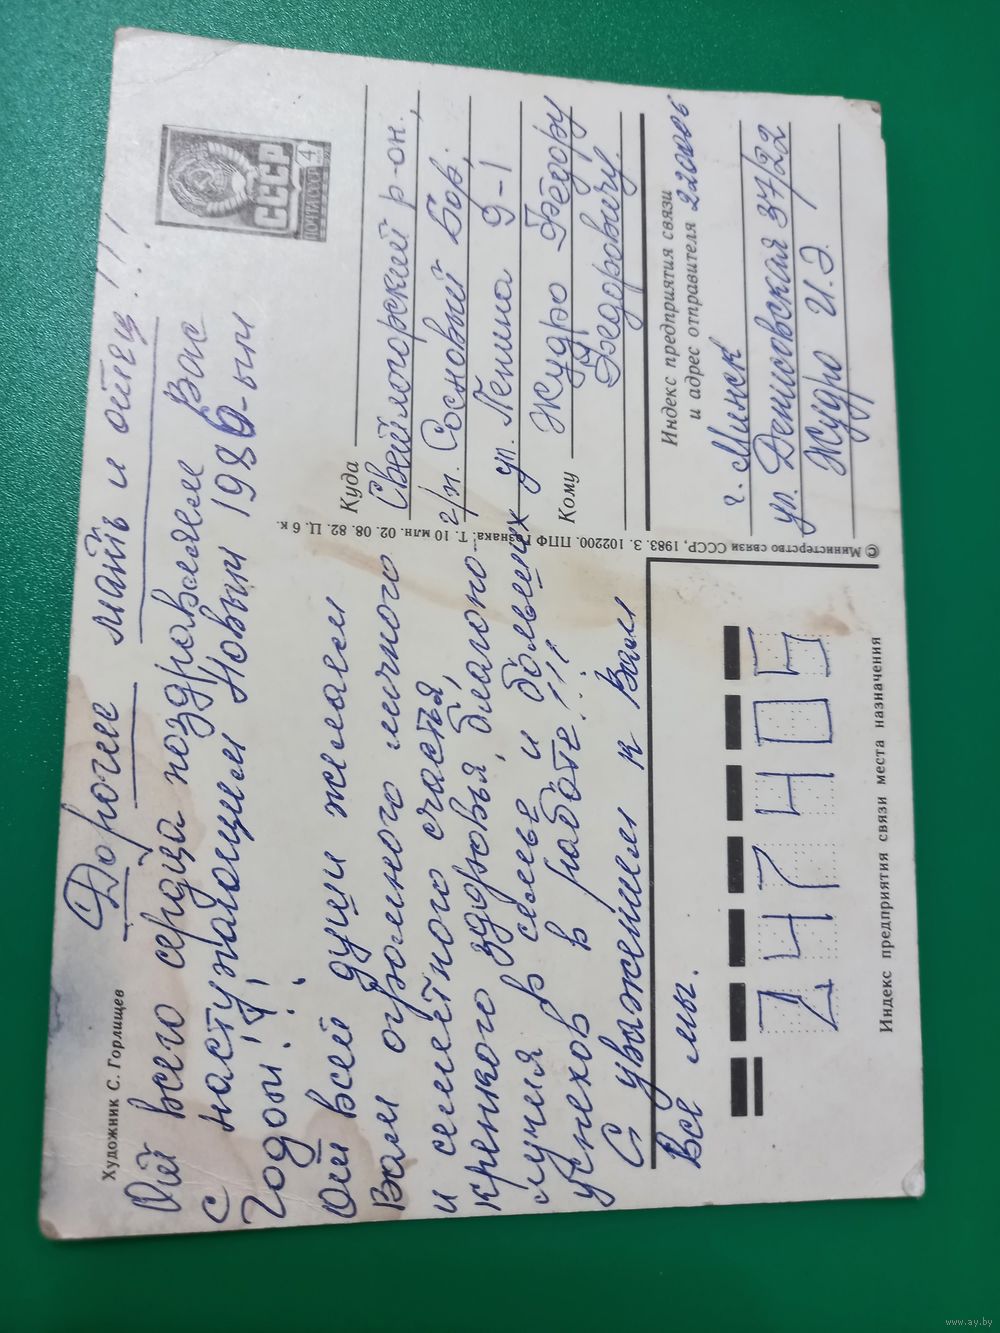 Художник С. Горлищев
Дорогие мать и отец!!!
От всего сердца поздравляем Вас
с наступающим Новым 1986-ым
годом!!!
От всей души желаем
Вам огромного личного
и семейного счастья,
крепкого здоровья, благопо-
лучия в семье и больших
успехов в работе!!!
С уважением к Вам
Все мы.
СССР
ПОЧТА СССР 4
Куда Светлогорский р-он.,
г/п. Сосновый Бор,
ул. Ленина 9-1
Кому Жудро Фёдору
Фёдоровичу.
Индекс предприятия связи
и адрес отправителя 220006
г. Минск
ул. Денисовская 37/22
Жудро И.Э.
© Министерство связи СССР, 1983. З. 102200. ППФ Гознака. Т. 10 млн. 02. 08. 82. Ц. 6 к.
247405
Индекс предприятия связи места назначения
www.ay.by